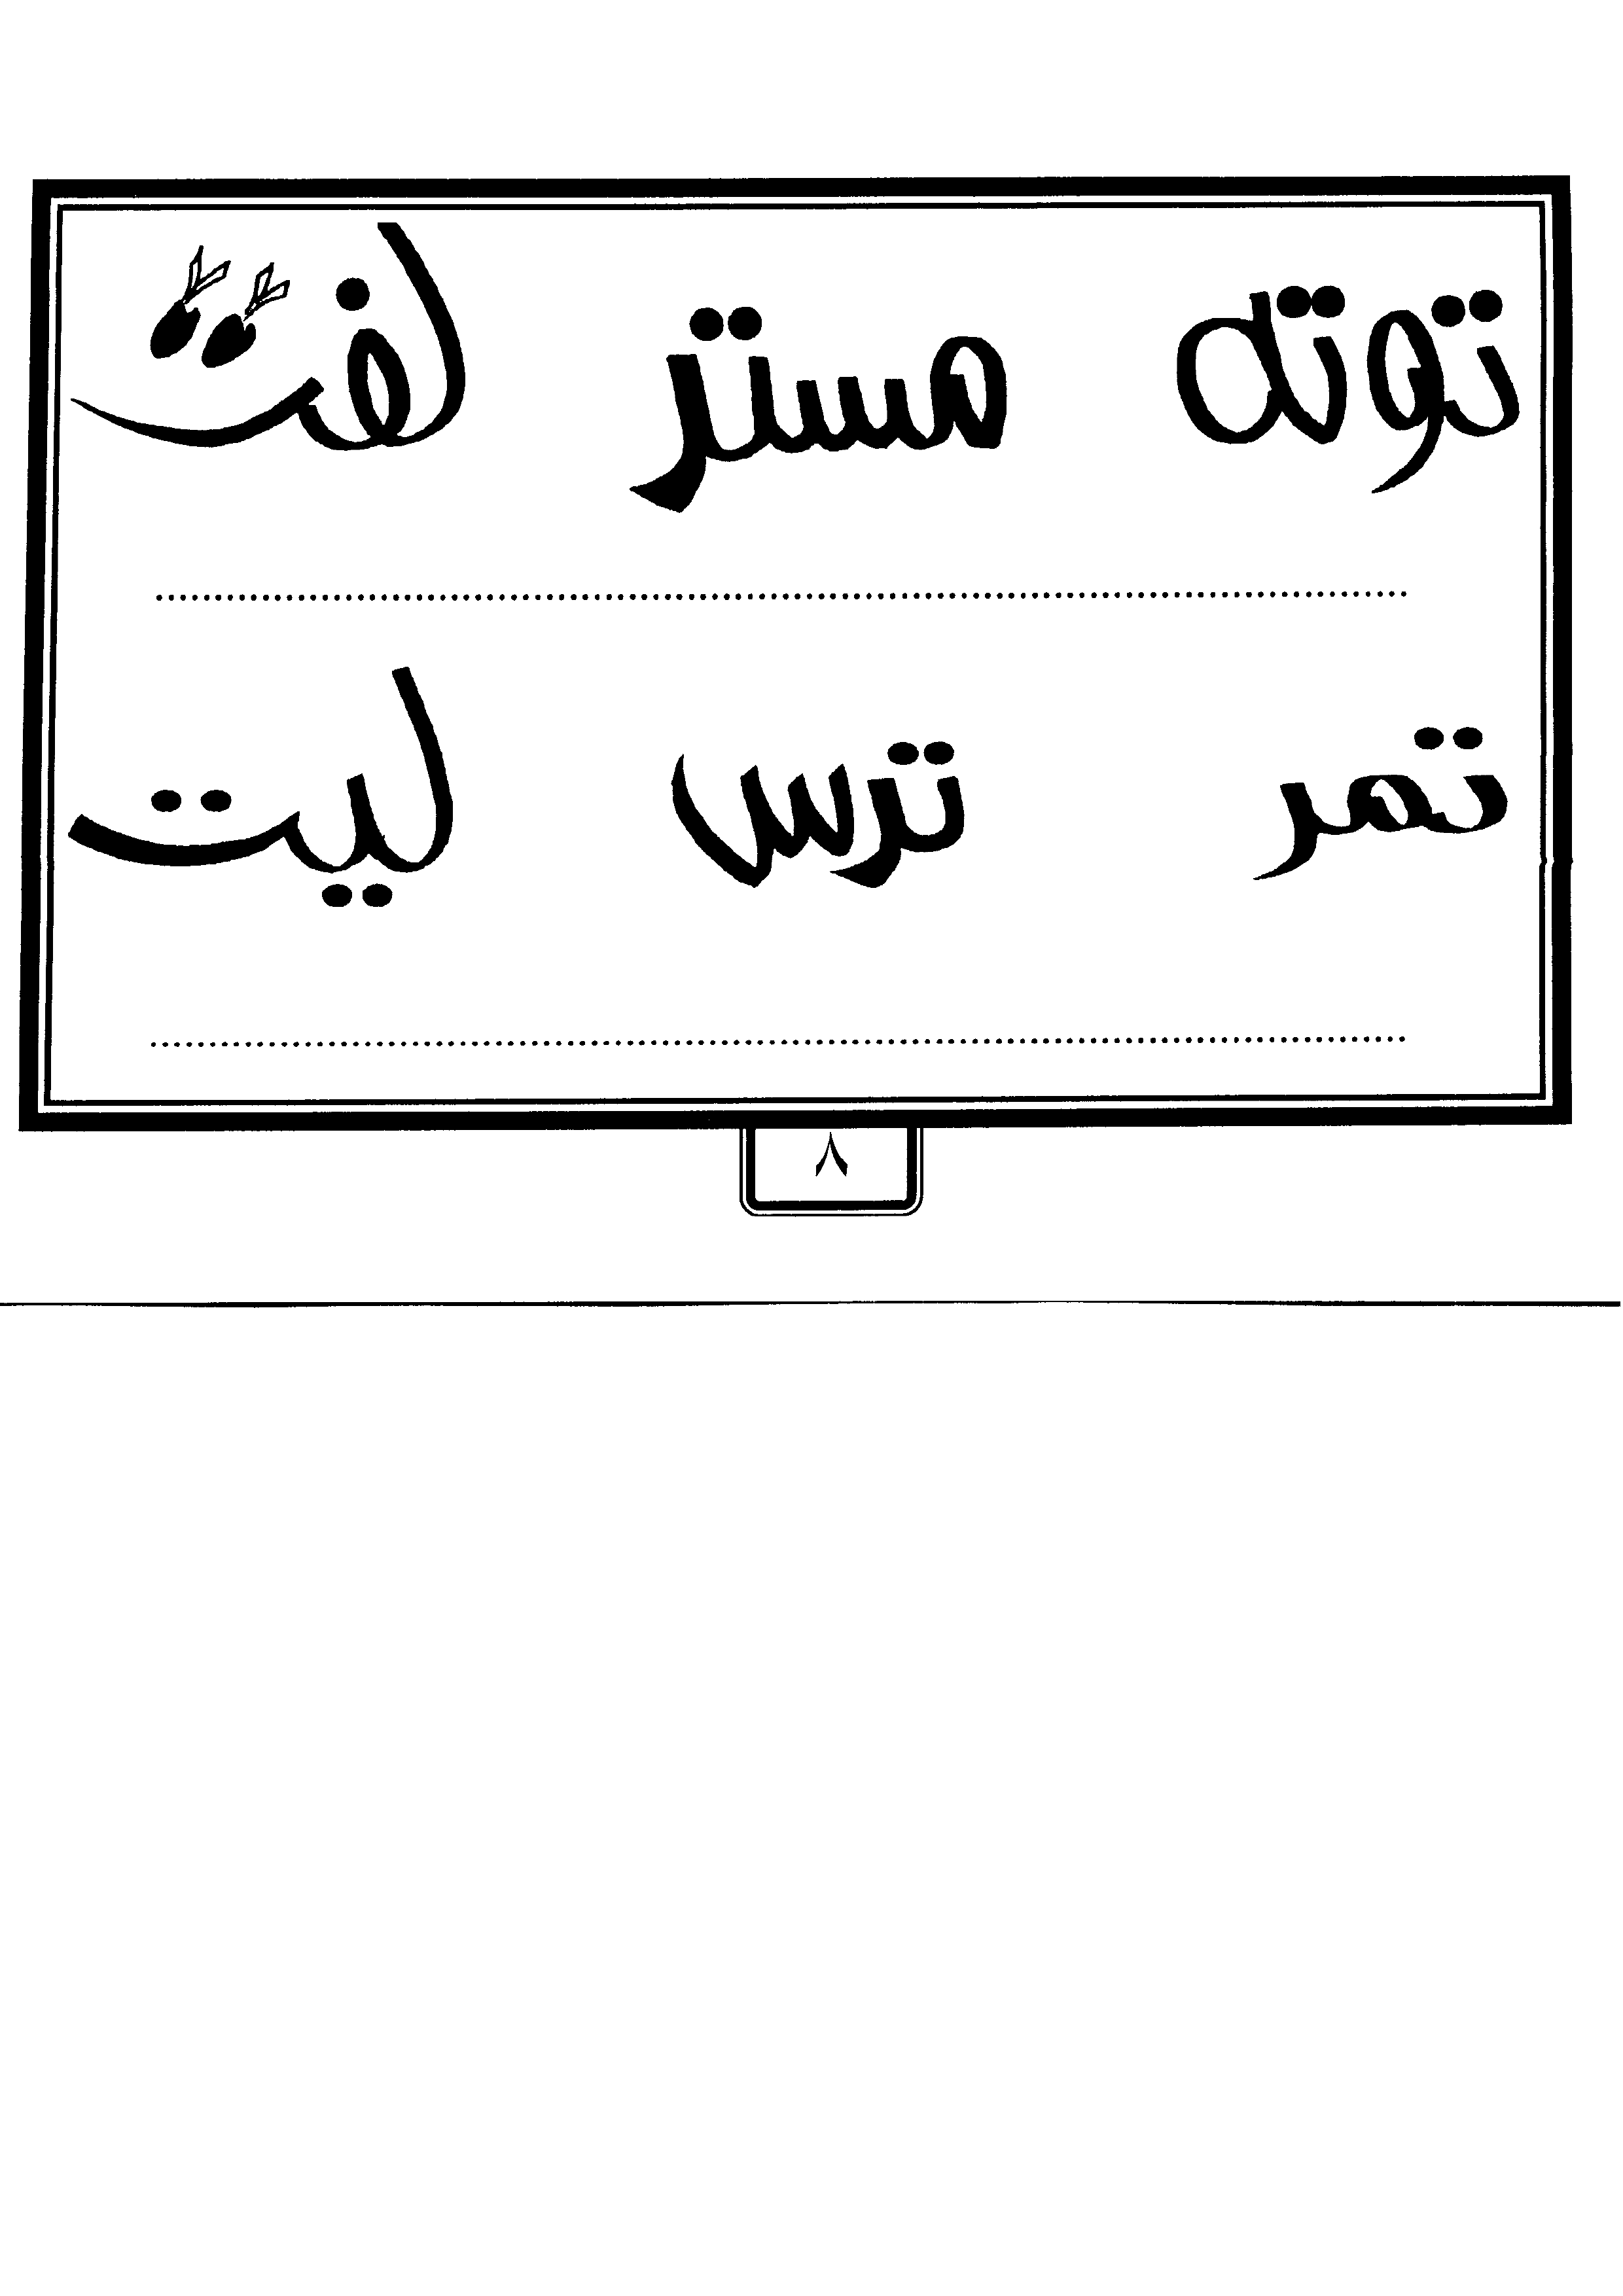 توته مستتر لفت
تمر ترس ليت
٨